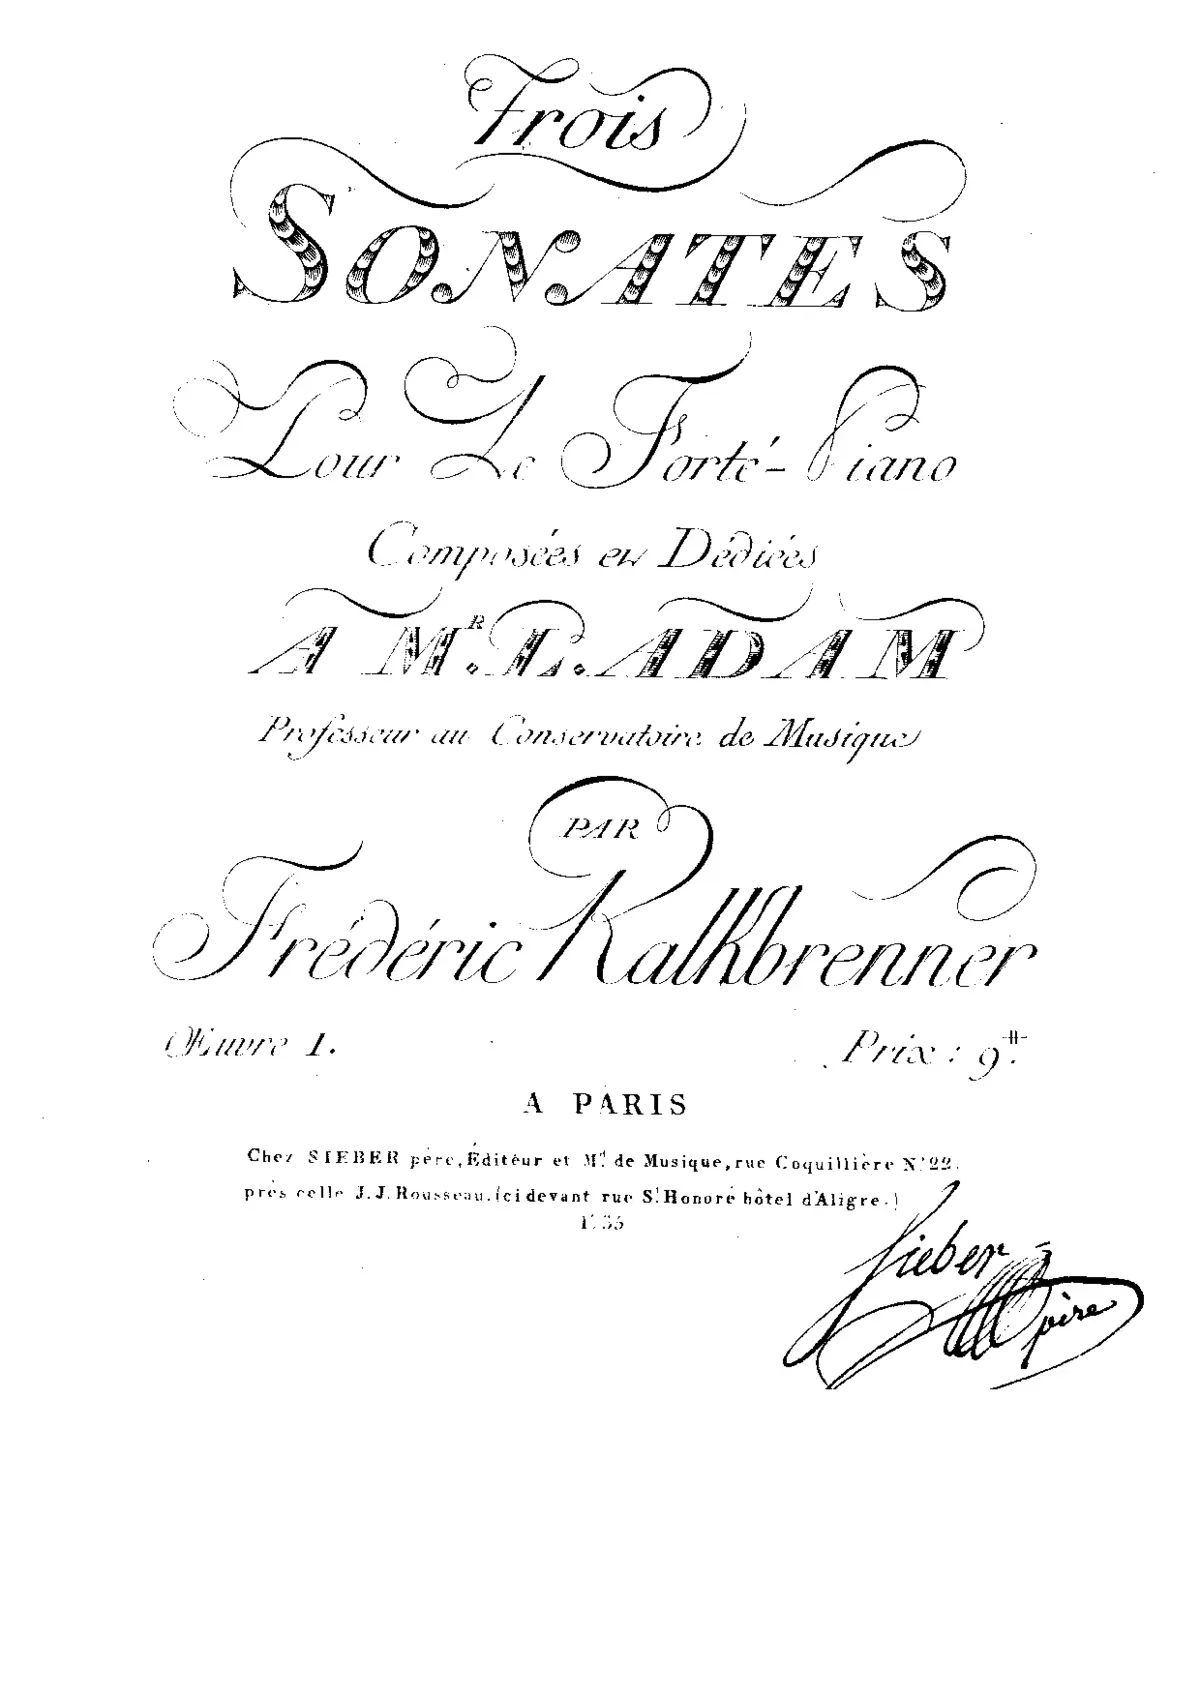 Trois
SONATES
Pour Le Forté-Piano
Composées et Dédiées
A MR. L. ADAM
Professeur au Conservatoire de Musique
PAR
Frédéric Kalkbrenner
Œuvre 1. Prix : 9#.
A PARIS
Chez SIEBER père, Éditeur et Md. de Musique, rue Coquillière No. 22.
près celle J. J. Rousseau. (ci devant rue St. Honoré hôtel d'Aligre.)
Sieber père